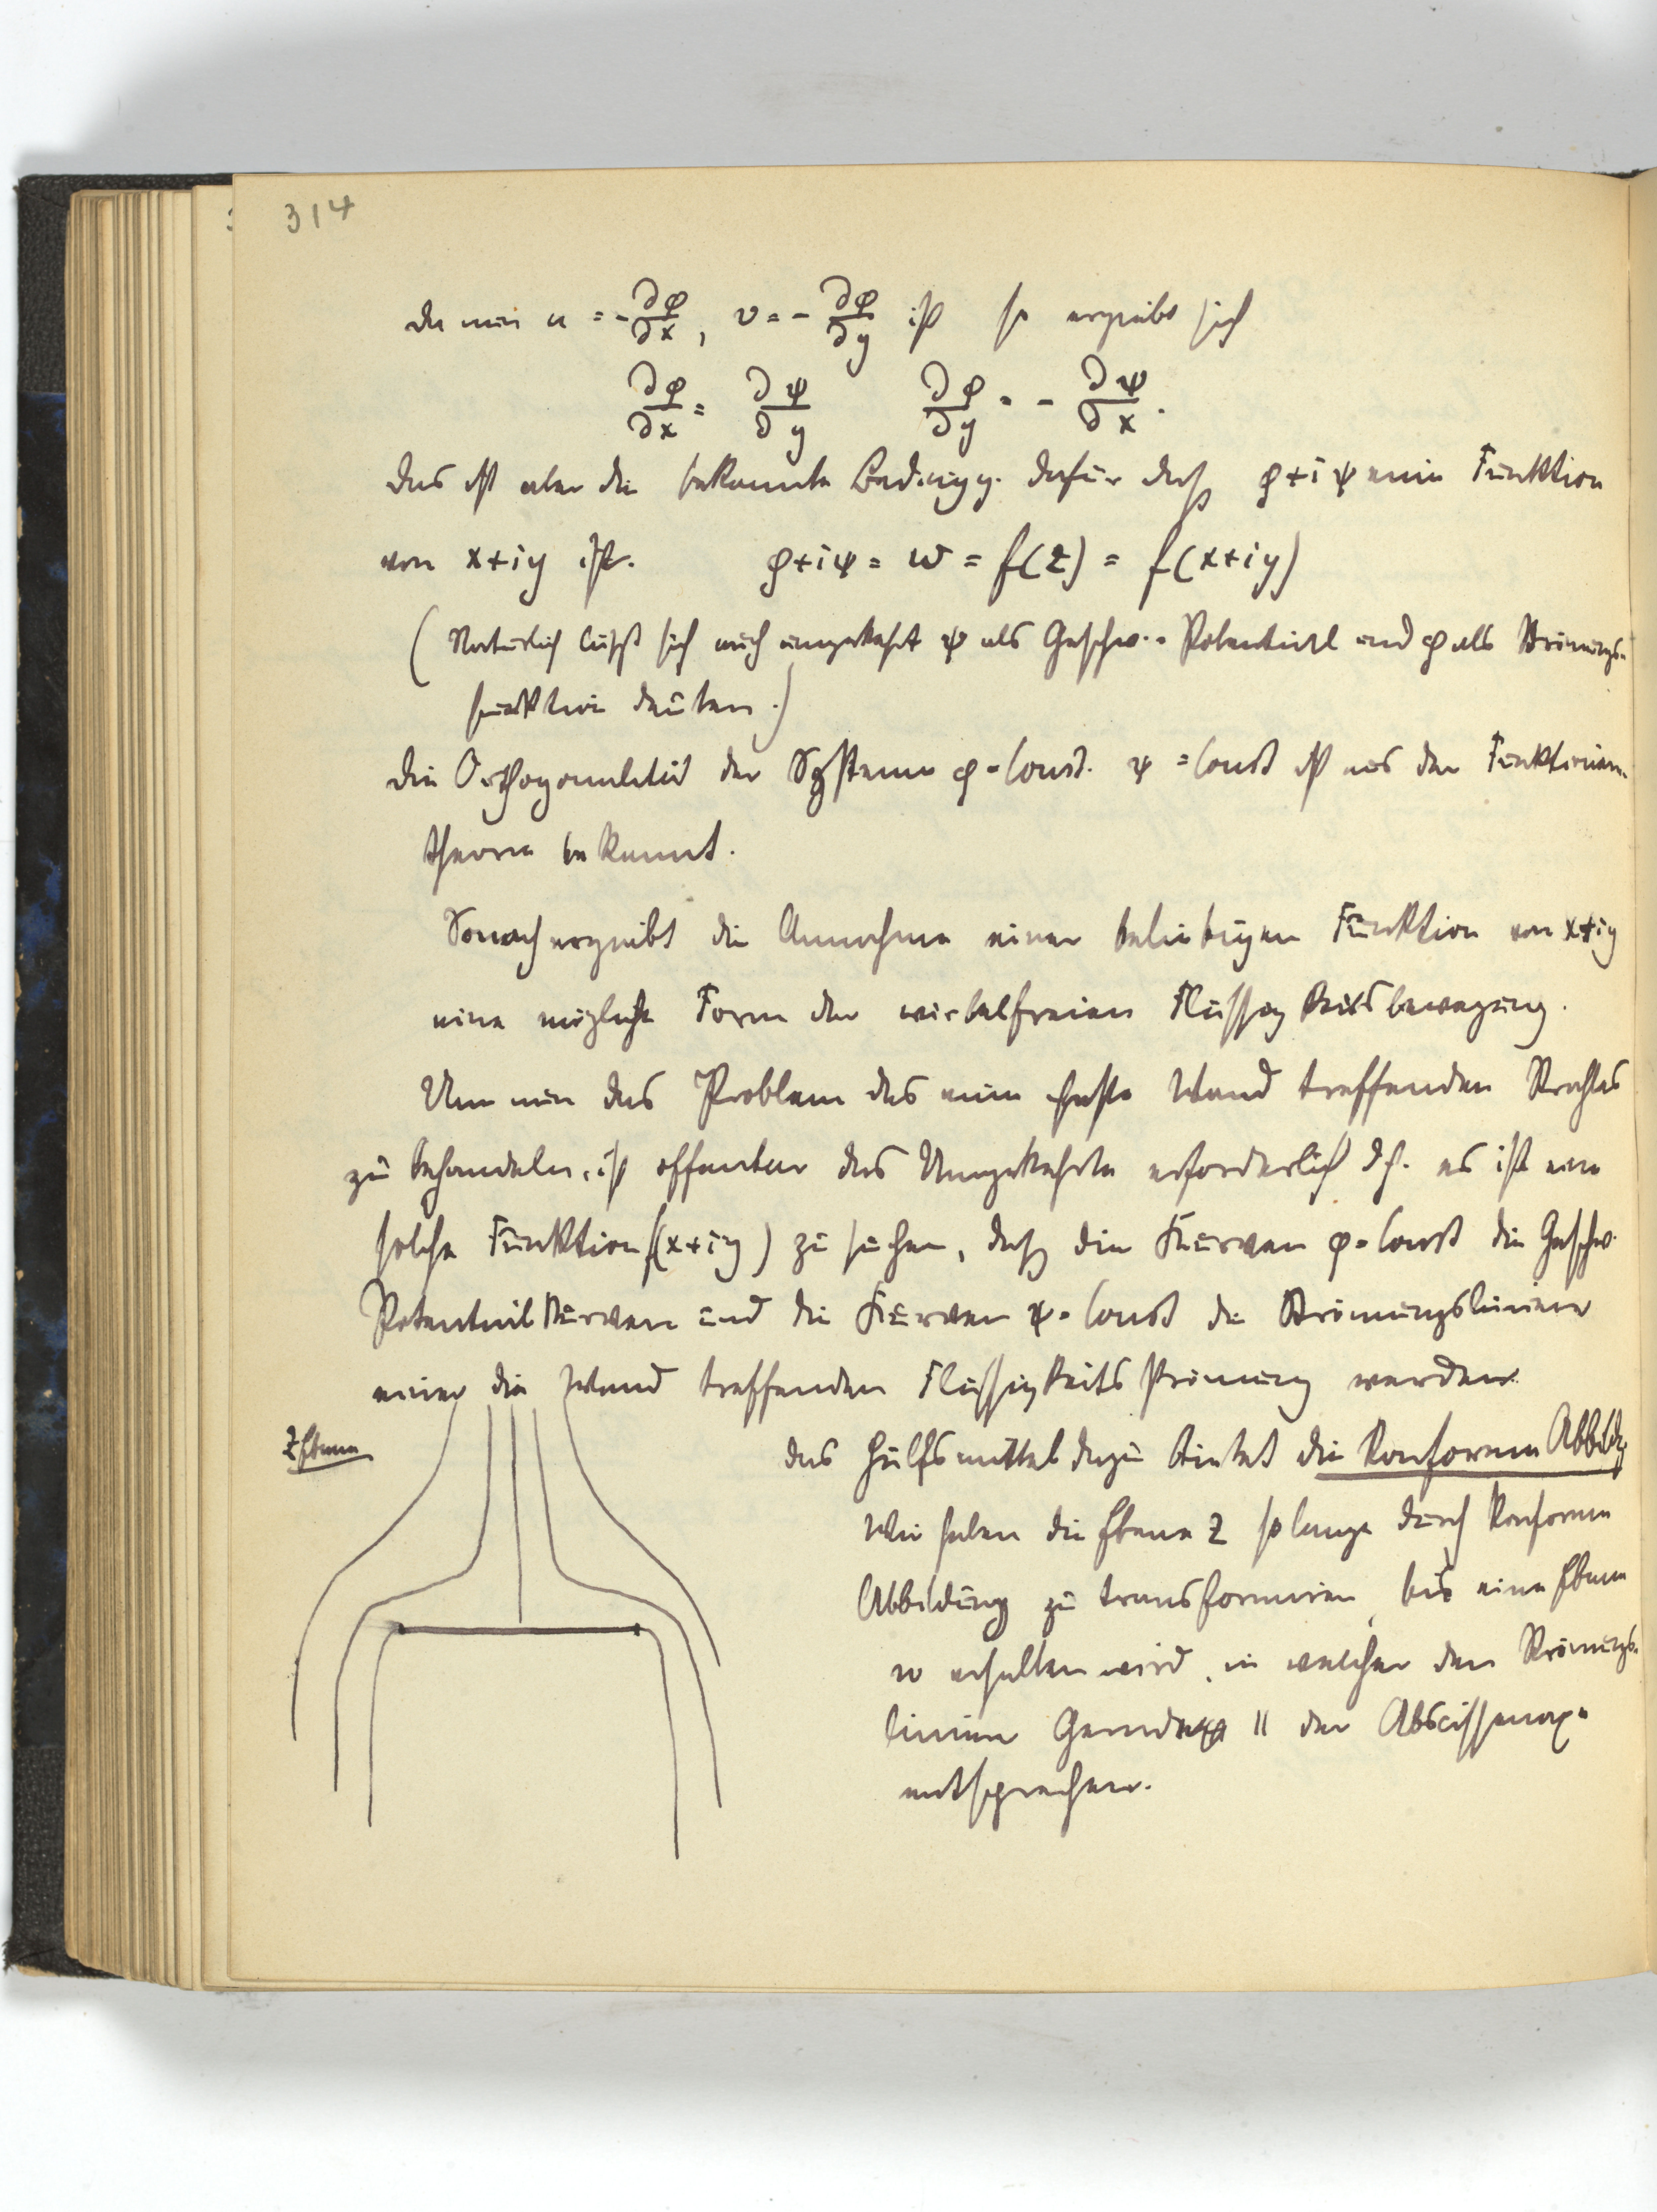 314
Da nun u = -∂φ/∂x, v = -∂φ/∂y ist so ergiebt sich
∂φ/∂x = ∂ψ/∂y ∂φ/∂y = -∂ψ/∂x.
Das ist aber die bekannte Bedingg. dafür daß φ+iψ eine Funktion
von x+iy ist. φ+iψ = w = f(z) = f(x+iy)
(Natürlich läßt sich auch umgekehrt ψ als Geschw.-Potential und φ als Strömungs-
funktion deuten.)
Die Orthogonalität der Systeme φ=Const. ψ=Const ist aus der Funktionen-
theorie bekannt.
Sonach ergiebt die Annahme einer beliebigen Funktion von x+iy
eine mögliche Form der wirbelfreien Flüssigkeitsbewegung.
Um nun das Problem des eine feste Wand treffenden Strahles
zu behandeln, ist offenbar das Umgekehrte erforderlich d.h. es ist eine
solche Funktion f(x+iy) zu suchen, daß die Kurven φ=Const die Geschw.
Potentialkurven und die Kurven ψ=Const die Strömungslinien
einer die Wand treffenden Flüssigkeitsströmung werden.
Z Ebene
Das Hülfsmittel dazu bietet die konforme Abbildg
Wir haben die Ebene Z so lange durch konforme
Abbildung zu transformiren, bis eine Ebene
w erhalten wird, in welcher den Strömungs-
linien Gerade || der Abscissenaxe
entsprechen.